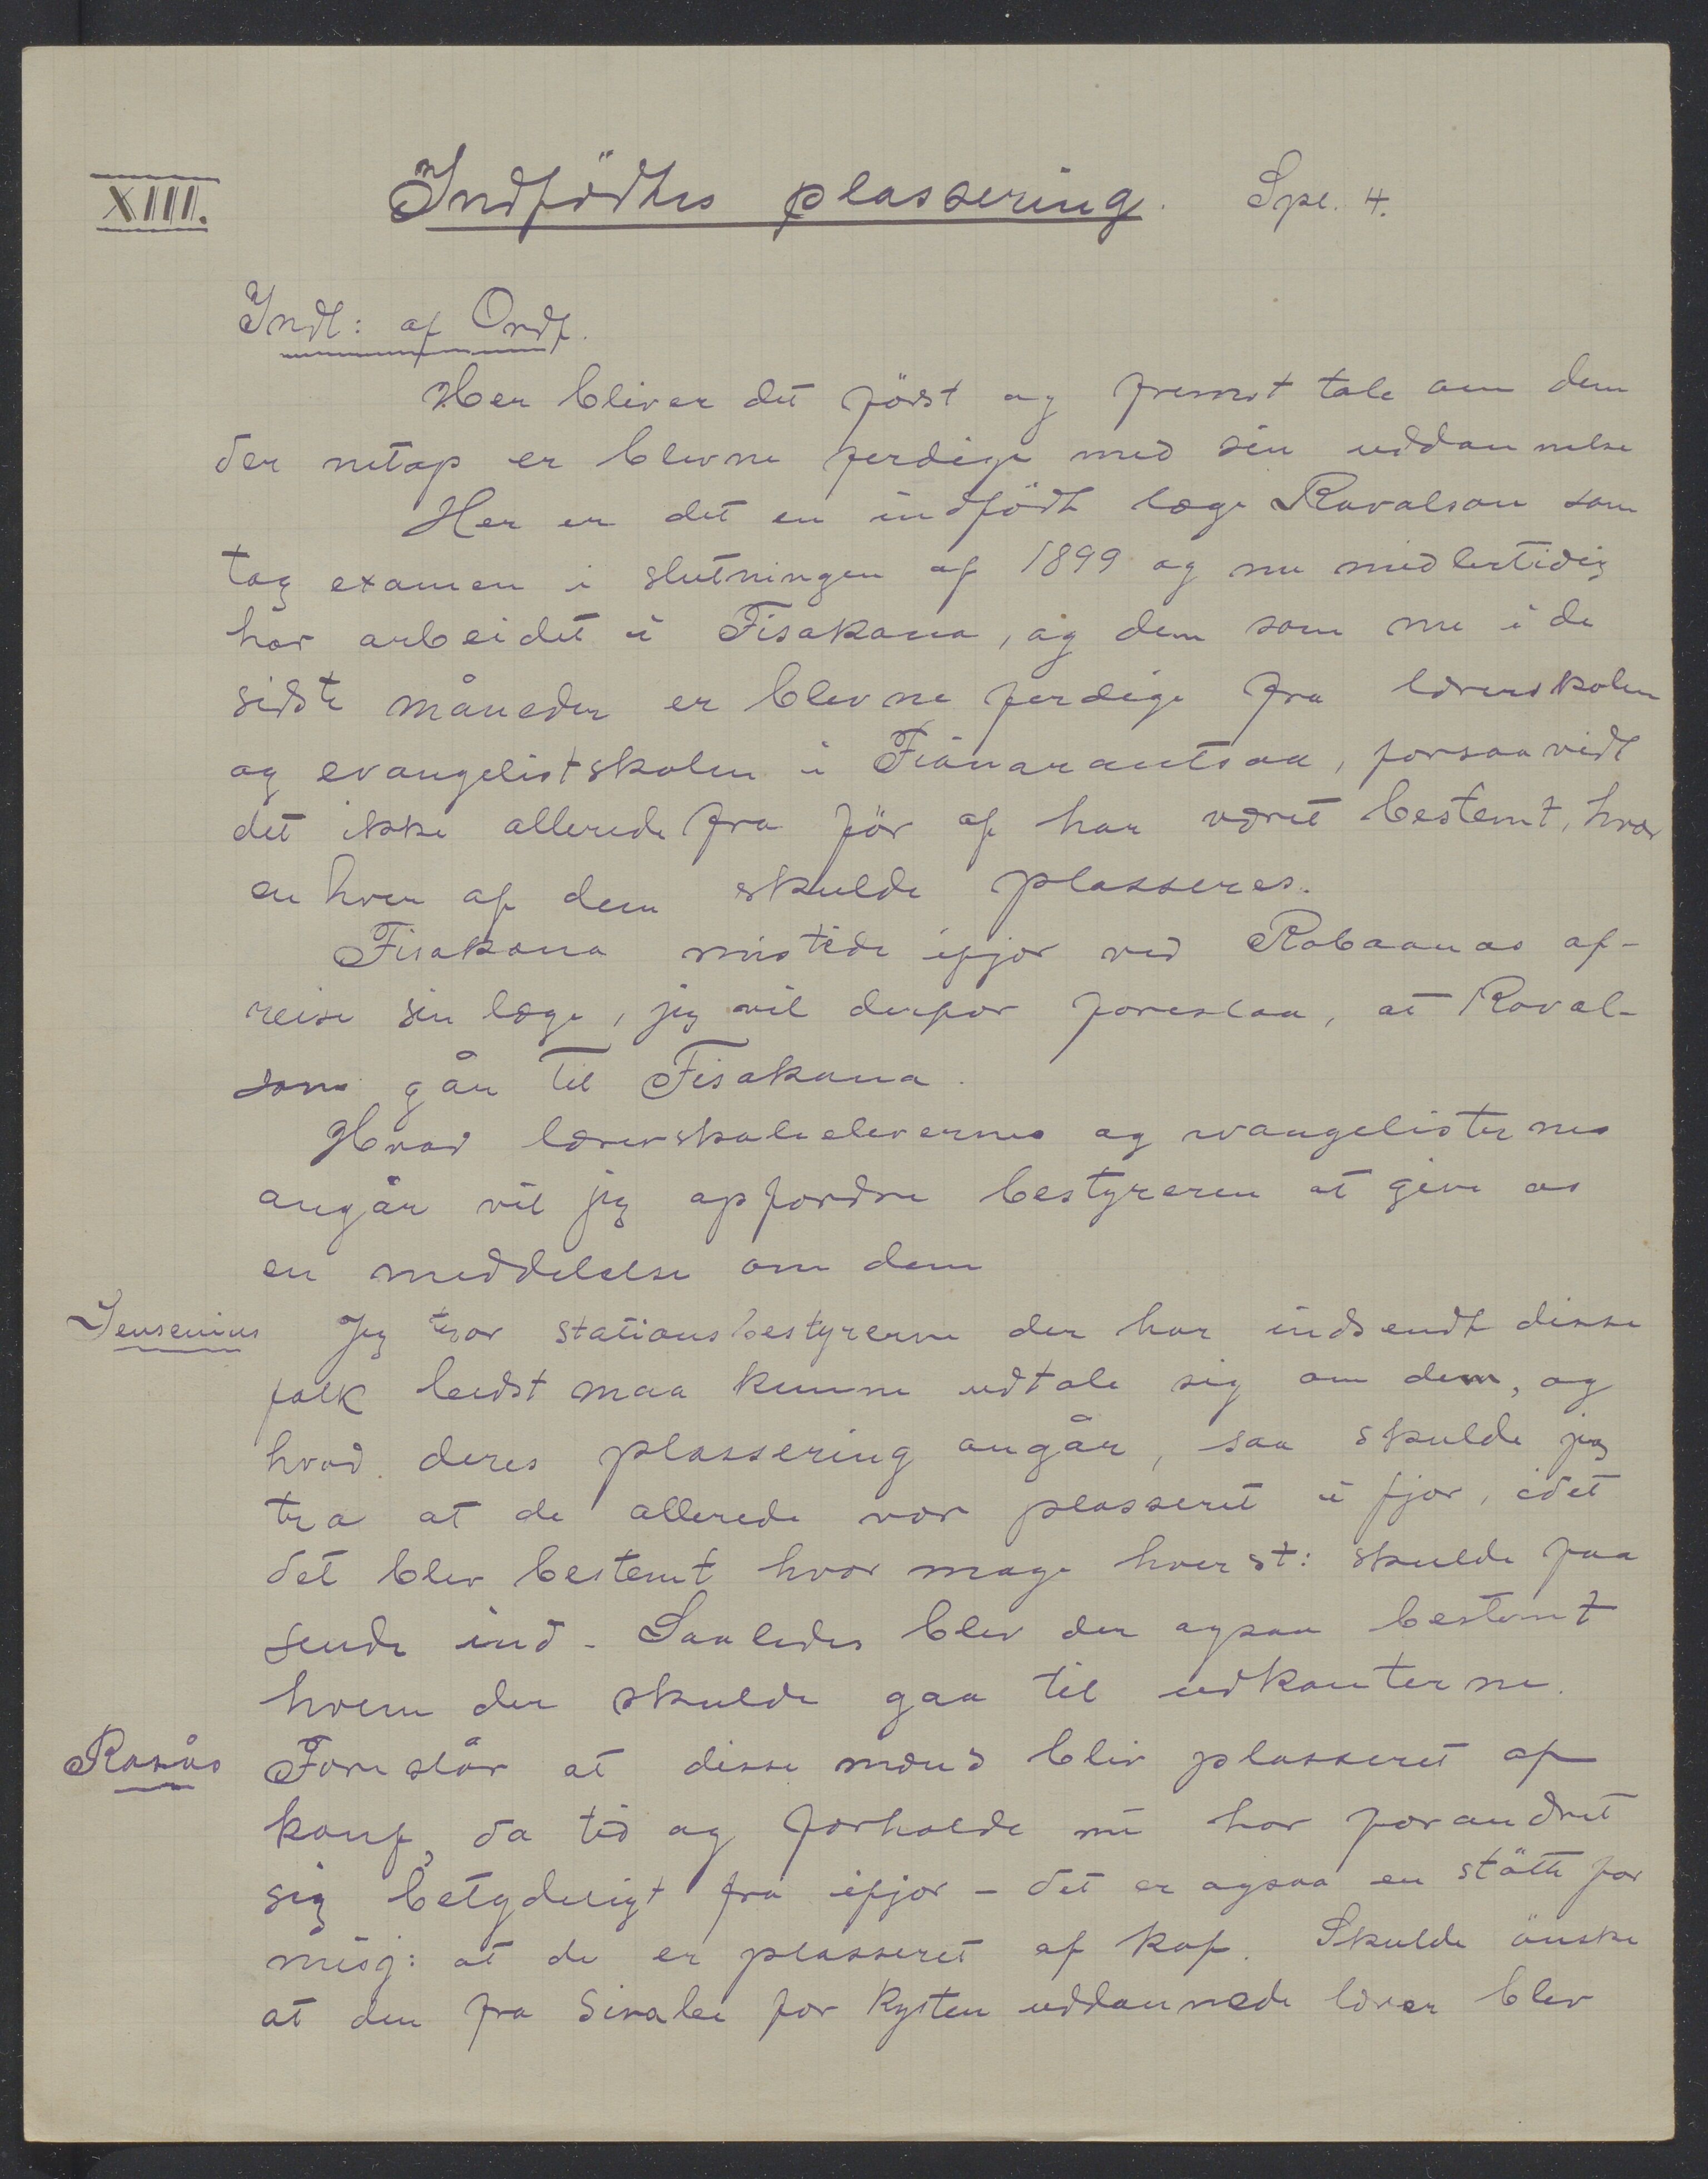 XIII. Indfödtes plassering. Spl. 4.
Indl: af Ordf.
Her bliver det först og fremst tale om dem
der netop er blevne ferdige med sin uddannelse
Her er det en indfödt læge Ravalson som
tog examen i slutningen af 1899 og nu midlertidig
har arbeidet i Fisakana, og dem som nu i de
sidste måneder er blevne ferdige fra lærerskolen
og evangelistskolen i Fianarantsoa, forsaavidt
det ikke allerede fra för af har været bestemt, hvor
enhver af dem skulde plasseres.
Fisakana mistede ifjor ved Rabaanas af-
reise sin læge, jeg vil derfor foreslaa, at Raval-
sona går til Fisakana.
Hvad lærerskoleelevernes og evangelisternes
angår vil jeg opfordre bestyreren at give os
en meddelelse om dem
Jensenius Jeg tror stationsbestyrerne der har indsendt disse
folk bedst maa kunne udtale sig om dem, og
hvad deres plassering angår, saa skulde jeg
tro at de allerede var plasseret i fjor, idet
det blev bestemt hvor mage hver st: skulde faa
sende ind. Saaledes blev der ogsaa bestemt
hvem der skulde gaa til udkanterne.
Rosaas Foreslår at disse mænd bliv plasseret af
konf, da tid og forholde nu har forandret
sig betydeligt fra ifjor - det er ogsaa en stötte for
misj: at de er plasseret af kof. Skulde önske
at den fra Sirabe for Kysten uddannede lærer blev